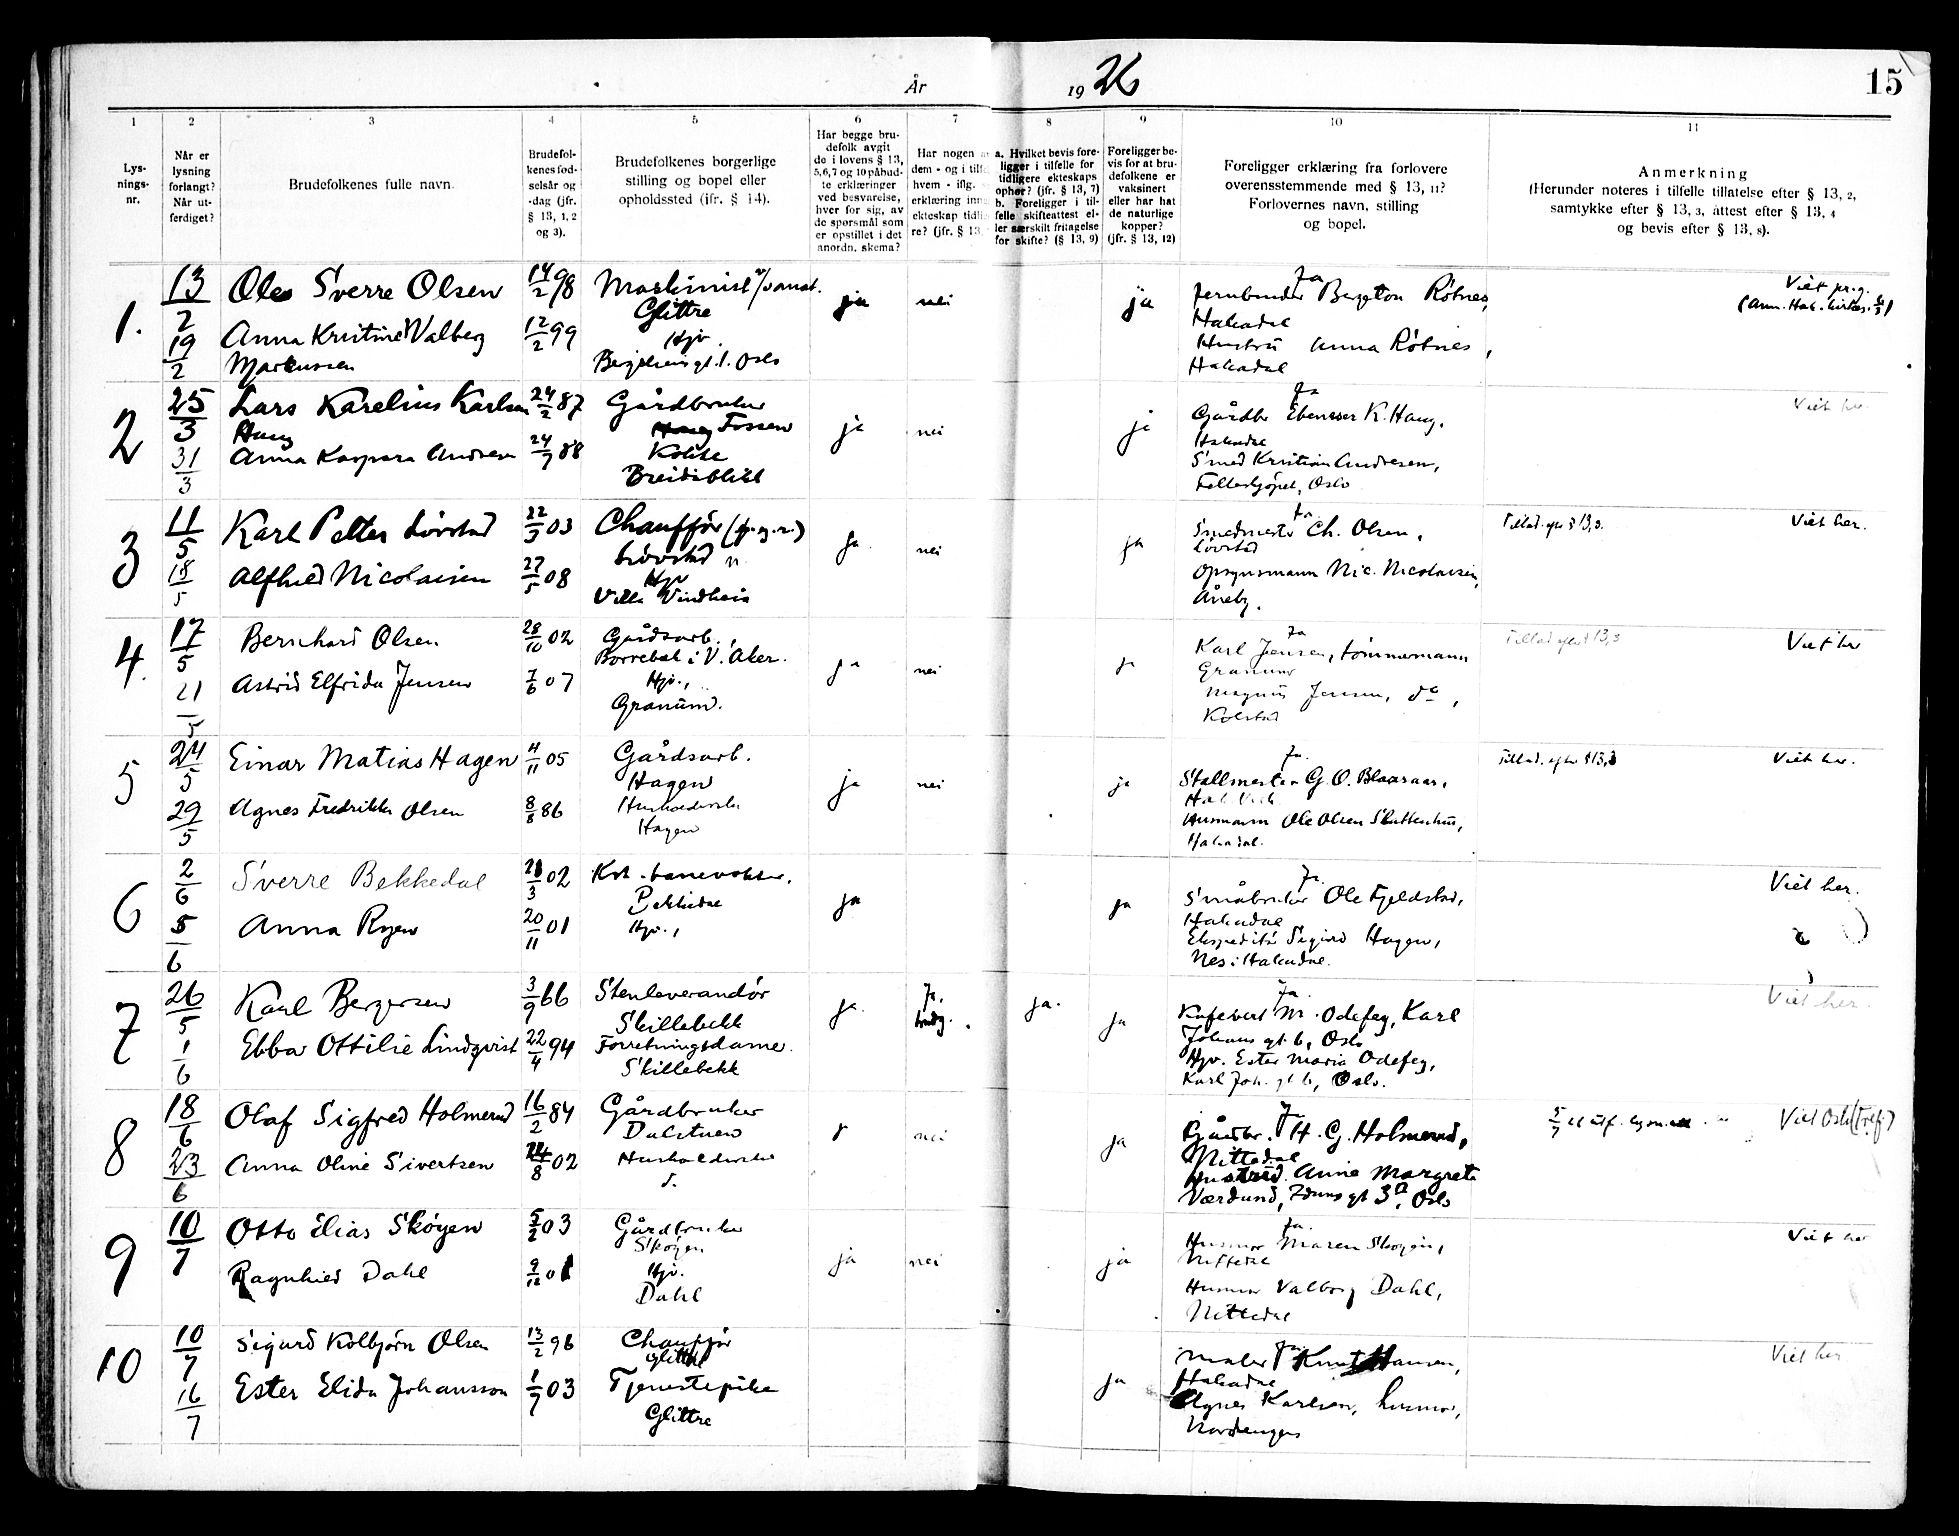 År 1926
15
1 2 3 4 5 6 7 8 9 10 11
Lys-
nings-
nr.
Når er
lysning
forlangt?
Når ut-
ferdiget?
Brudefolkenes fulle navn.
Brudefol-
kenes fød-
selsår og
-dag (jfr.
§ 13, 1, 2
og 3).
Brudefolkenes borgerlige
stilling og bopel eller
opholdssted (jfr. § 14).
Har begge bru-
defolk avgit
de i lovens § 13,
5, 6, 7 og 10 påbud-
te erklæringer
ved besvarelse,
hver for sig, av
de spørsmål som
er opstillet i det
anordn. skema?
Har nogen a
dem - og i tilf
hvem - iflg.
erklæring inn
ekteskap tidli
re? (jfr. § 13,
a. Hvilket bevis fore-
ligger i tilfelle for
tidligere ekteskaps
ophør? (jfr. § 13, 7)
b. Foreligger i til-
felle skifteattest el-
ler særskilt fritagelse
for skifte? (§ 13, 9)
Foreligger be-
vis for at bru-
defolkene er
vaksinert
eller har hat
de naturlige
kopper?
(jfr. § 13, 12)
Foreligger erklæring fra forlovere
overensstemmende med § 13, 11?
Forlovernes navn, stilling
og bopel.
Anmerkning
(Herunder noteres i tilfelle tillatelse efter § 13, 2,
samtykke efter § 13, 3, attest efter § 13, 4
og bevis efter § 13, 8).
1. 13/2 Ole Sverre Olsen 14/2 98 Maskinist v/sanat. ja nei ja Ja
Glittre Jernbinder Bergton Rötnes,
Hakadal
19/2 Anna Kristine Valberg 12/2 99 Hjv. Hustru Anna Rötnes,
Markussen Oslo Hakadal
Viet pr.g.
2 25/3 Lars Karelius Karlsen 24/2 87 Gårdbruker ja nei ja Ja
Haug Fossen Gårdbr Ebeneser K. Haug,
Hakadal
31/3 Anna Kaspara Andresen 24/7 88 Kokke Smed Kristian Andresen,
Breidablikk Felleskjöpet, Oslo
Viet her
3 11/5 Karl Petter Lövstad 22/3 03 Chaufför (g.g.r.) ja nei ja Ja
Lövstad n. Smedmester Ch. Olsen,
Lövstad
18/5 Alfhild Nicolaisen 27/5 08 Hjv Opsynsmann Nic. Nicolaisen,
Villa Vindheim Åneby.
Tillad. efter § 13,3. Viet her.
4. 17/5 Bernhard Olsen 28/10 02 Gårdsarb. ja nei ja Ja
Borrebæk i V. Aker. Karl Jensen, tömmermann
Granum
21/5 Astrid Elfrida Jensen 7/6 07 Hjv., Magnus Jensen, do,
Granum. Kolstad
Tillad efter § 13,3 Viet her
5 24/5 Einar Matias Hagen 4/11 05 Gårdsarb. ja nei ja Ja.
Hagen Stallmester G. O. Blaaraar,
Hak. Verk.
29/5 Agnes Fredrikke Olsen 8/8 86 Husholderske Husmann Ole Olsen Skuttenhus,
Hagen Hakadal.
Tillad. efter § 13,3 Viet her.
6 2/6 Sverre Bekkedal 21/3 02 Kst. banevokter. ja ja Ja.
Bekkedal Småbruker Ole Fjeldstad,
Hakadal
5/6 Anna Ryen 20/11 01 Hjv., Ekspeditör Sigurd Hagen,
Nes i Hakadal.
Viet her.
7 26/5 Karl Bergersen 3/9 66 Stenleverandör ja. Ja, brudg. ja. ja Ja.
Skillebekk Kafevert M. Odefey, Karl
Johans gt 6, Oslo
1/6 Ebba Ottilie Lindqvist 22/4 94 Forretningsdame Hjv. Ester Maria Odefey,
Skillebekk Karl Joh. gt 6, Oslo.
Viet her.
8 18/6 Olaf Sigfred Holmerud 16/2 84 Gårdbruker nei ja
Dalstuen Gårdbr. H. G. Holmerud,
Nittedal
23/6 Anna Oline Sivertsen 24/8 02 Husholderske Anne Margrete
Værdund, gt 3a, Oslo
Viet Oslo
9 10/7 Otto Elias Sköyen 5/2 03 Gårdbruker ja nei ja Ja.
Sköyen Husmor Maren Sköyen,
Nittedal
Ragnhild Dahl 9/12 01 Hjv. Husmor Valborg Dahl,
Dahl Nittedal
Viet her
10 10/7 Sigurd Kolbjørn Olsen 13/2 96 Chauffør ja Ja
Glittre Maler Knut Hansen,
Hakadal
16/7 Ester Elida Johansson 1/7 03 Tjenestepike Agnes Karlsen, husmor,
Glittre Nordengen
Viet her